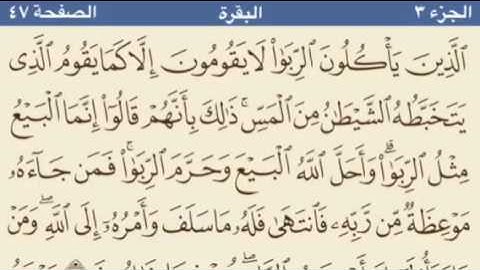 الجزء ٣ البقرة الصفحة ٤٧
ٱلَّذِينَ يَأۡكُلُونَ ٱلرِّبَوٰاْ لَا يَقُومُونَ إِلَّا كَمَا يَقُومُ ٱلَّذِي
يَتَخَبَّطُهُ ٱلشَّيۡطَٰنُ مِنَ ٱلۡمَسِّۚ ذَٰلِكَ بِأَنَّهُمۡ قَالُوٓاْ إِنَّمَا ٱلۡبَيۡعُ
مِثۡلُ ٱلرِّبَوٰاْۗ وَأَحَلَّ ٱللَّهُ ٱلۡبَيۡعَ وَحَرَّمَ ٱلرِّبَوٰاْۚ فَمَن جَآءَهُۥ
مَوۡعِظَةٞ مِّن رَّبِّهِۦ فَٱنتَهَىٰ فَلَهُۥ مَا سَلَفَ وَأَمۡرُهُۥٓ إِلَى ٱللَّهِۖ وَمَنۡ